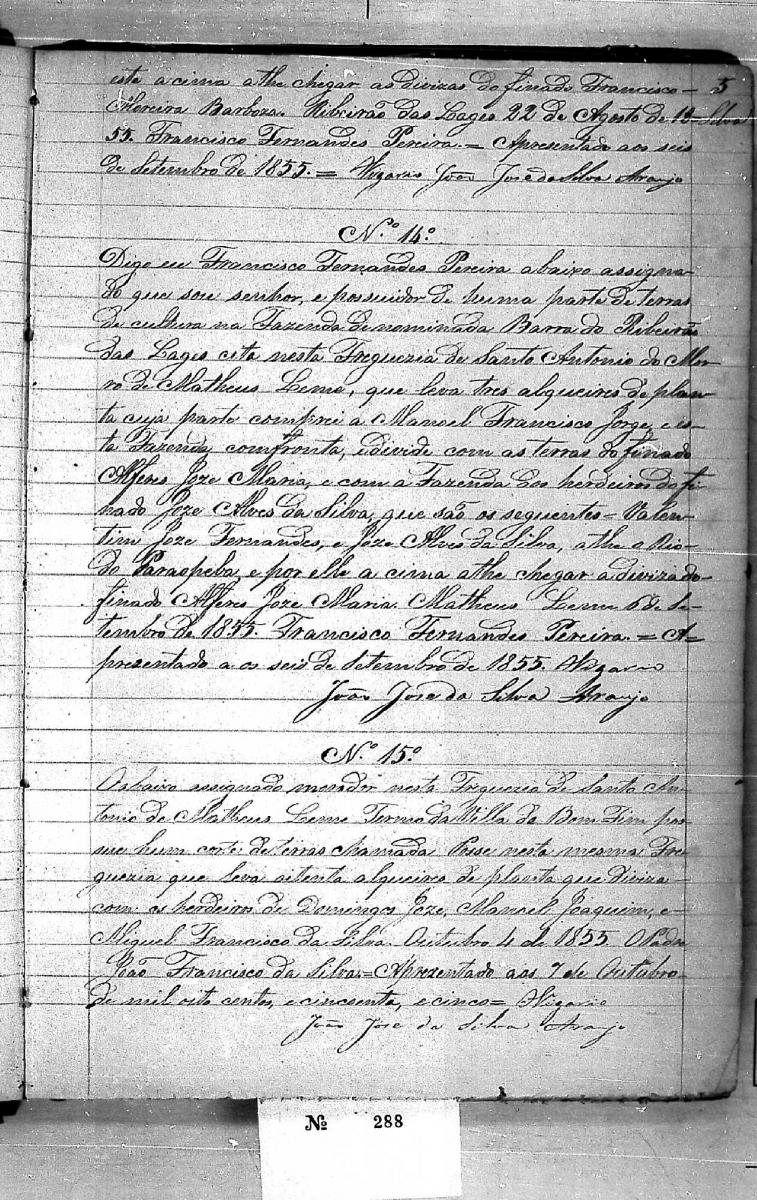 este acima athe chegar as divizas do finado Francisco 5
Moreira Barboza. Ribeirão das Lages 22 de Agosto de 18= Silva
55. Francisco Fernandes Pereira. = Apresentado aos seis
de Setembro de 1855. = Vigario João Jose da Silva Araujo
N.º 14º
Digo eu Francisco Fernandes Pereira abaixo assigna-
do que sou senhor, e possuidor de huma parte de terras
de cultura na Fazenda denominada Barra do Ribeirão
das Lages cita nesta Freguezia de Santo Antonio do Mor-
ro de Matheus Leme, que leva tres alqueires de plan-
ta cuja parte comprei a Manoel Francisco Jorge, e es-
ta Fazenda comfronta, e divide com as terras do finado
Alferes Joze Maria, e com a Fazenda dos herdeiros do fi-
nado Joze Alves da Silva, que são os seguentes = Valen-
tim Joze Fernandes, e Joze Alves da Silva, athe o Rio-
do Paraopeba, e por elle a cima athe chegar a diviza do-
finado Alferes Joze Maria. Matheus Leme 6 de Se-
tembro de 1855. Francisco Fernandes Pereira. = A=
prezentado a os seis de Setembro de 1855. Vigario
João Jose da Silva Araujo
N.º 15º
O abaixo assignado morador nesta Freguezia de Santo An-
tonio de Matheus Leme Termo da Villa do Bom Fim pos-
sue hum corte de terras chamada Posse nesta mesma Fre-
guezia que leva oitenta alqueires de planta que diviza
com os herdeiros de Domingos Joze, Manoel Joaquim, e-
Miguel Francisco da Silva. Outubro 4 de 1855. O Padre
João Francisco da Silva. = Aprezentado aos 7 de Outubro
de mil oito centos, e cincoenta, e cinco = Vigario
João Jose da Silva Araujo
№ 288